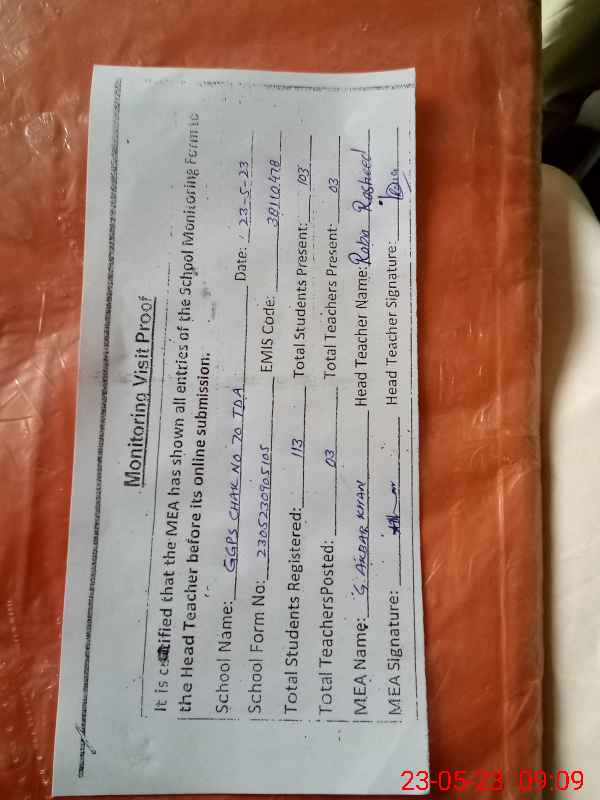 Monitoring Visit Proof
It is certified that the MEA has shown all entries of the School Monitoring Form to
the Head Teacher before its online submission.
School Name: GGPS CHAK NO 70 TDA Date: 23-5-23
School Form No: 2305230905105 EMIS Code: 38110478
Total Students Registered: 113 Total Students Present: 103
Total TeachersPosted: 03 Total Teachers Present: 03
MEA Name: G. AKBAR KHAN Head Teacher Name: Raba Rasheed
MEA Signature: Head Teacher Signature:
23-05-23 09:09